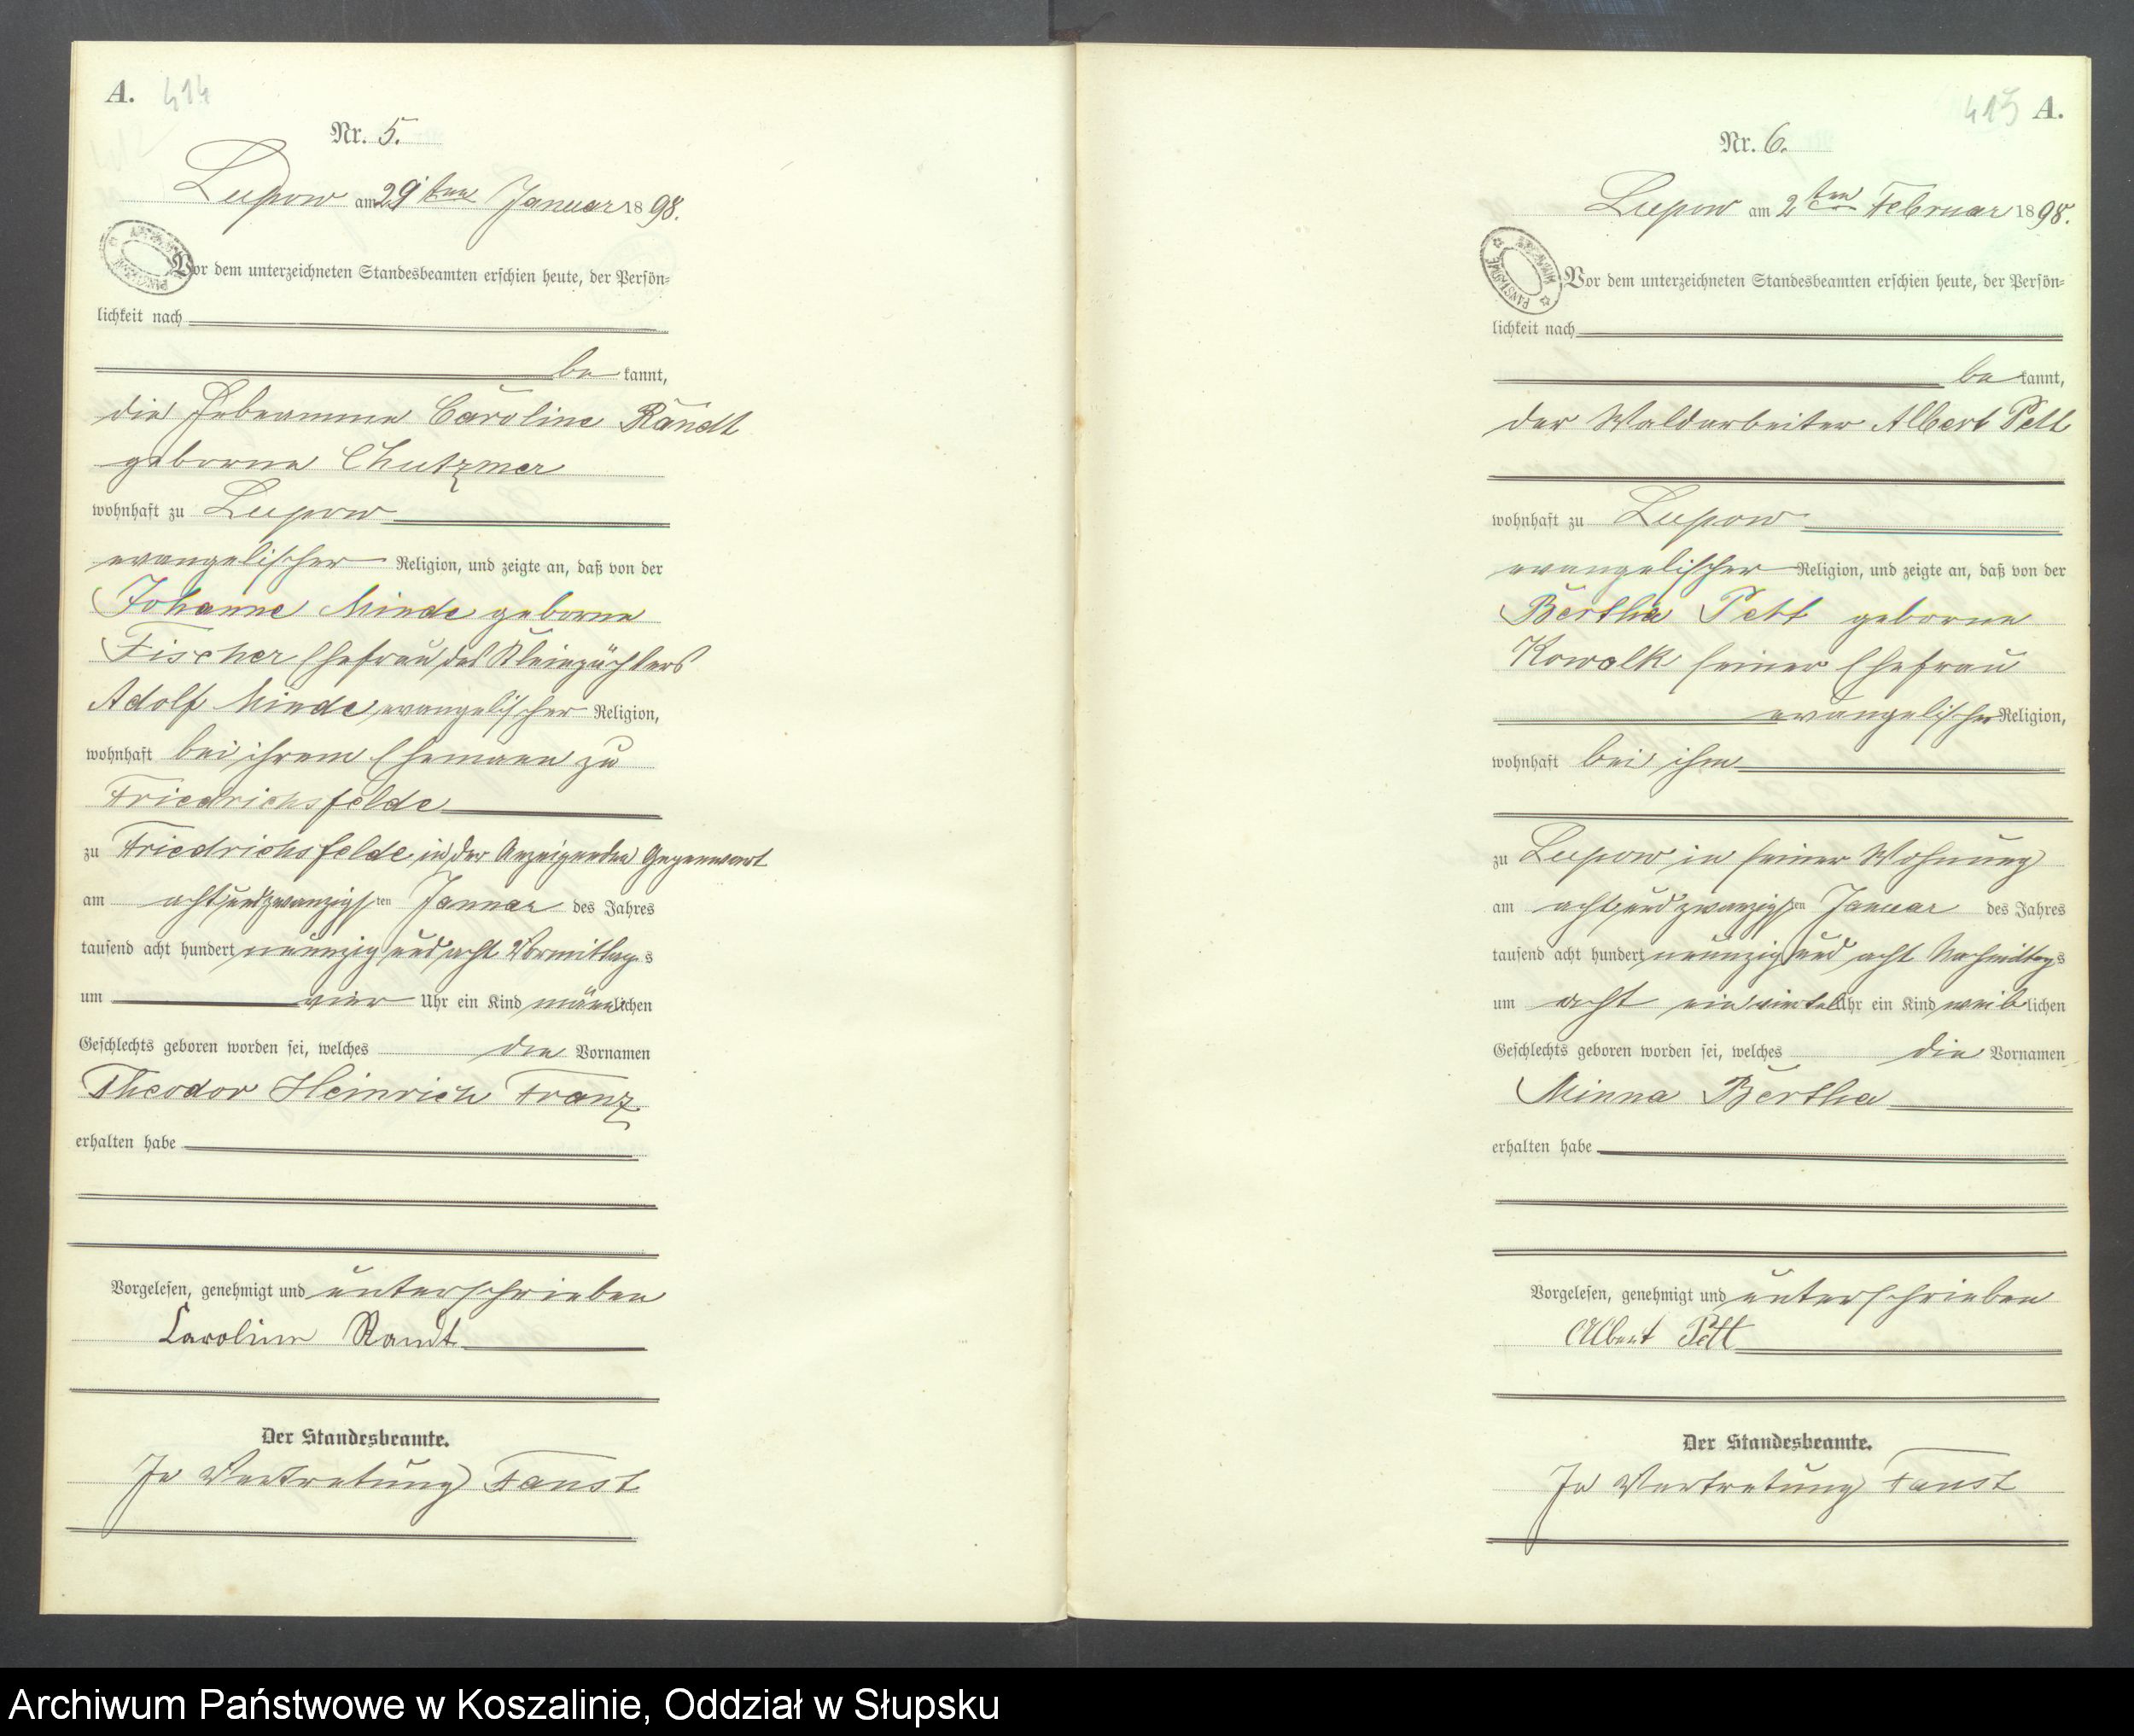 A. 414
Nr. 5.
Lupow am 29ten Januar 1898.
Vor dem unterzeichneten Standesbeamten erschien heute, der Persön-
lichkeit nach
be kannt,
die Hebeamme Caroline Randt
geborne Chutzmer
wohnhaft zu Lupow
evangelischer Religion, und zeigte an, daß von der
Johanne Minde geborne
Fischer Ehefrau des Kleinpächters
Adolf Minde, evangelischer Religion,
wohnhaft bei ihrem Ehemann zu
Friedrichsfelde
zu Friedrichsfelde, in der Anzeigenden Gegenwart
am achtundzwanzigsten Januar des Jahres
tausend acht hundert neunzig und acht Vormittags
um vier Uhr ein Kind männlichen
Geschlechts geboren worden sei, welches die Vornamen
Theodor Heinrich Franz
erhalten habe
Vorgelesen, genehmigt und unterschrieben
Caroline Ramt
Der Standesbeamte.
In Vertretung Faust
415 A.
Nr. 6.
Lupow am 2ten Februar 1898.
ARCHIWUM PAŃSTWOWE
Vor dem unterzeichneten Standesbeamten erschien heute, der Persön-
lichkeit nach
be kannt,
der Waldarbeiter Albert Pett
wohnhaft zu Lupow
evangelischer Religion, und zeigte an, daß von der
Bertha Pett geborne
Kowalk seiner Ehefrau
evangelischer Religion,
wohnhaft bei ihm
zu Lupow in seiner Wohnung
am achtundzwanzigsten Januar des Jahres
tausend acht hundert neunzig und acht Nachmittags
um acht ein viertel Uhr ein Kind weiblichen
Geschlechts geboren worden sei, welches die Vornamen
Minna Bertha
erhalten habe
Vorgelesen, genehmigt und unterschrieben
Albert Pett
Der Standesbeamte.
In Vertretung Faust
Archiwum Państwowe w Koszalinie, Oddział w Słupsku